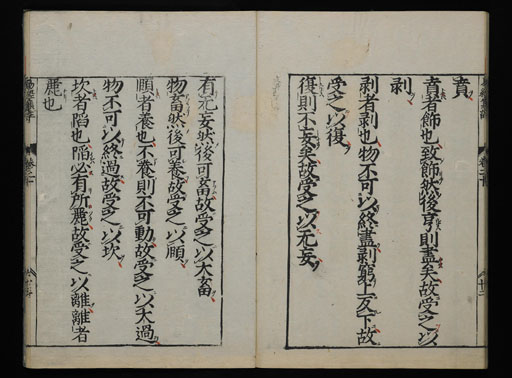 賁
賁者飾也致飾然後亨則盡矣故受之以
剥
剥者剥也物不可以終盡剥窮上反下故
受之以復
復則不妄矣故受之以无妄
有无妄然後可畜故受之以大畜
物畜然後可養故受之以頤
頤者養也不養則不可動故受之以大過
物不可以終過故受之以坎
坎者陷也陷必有所麗故受之以離離者
麗也